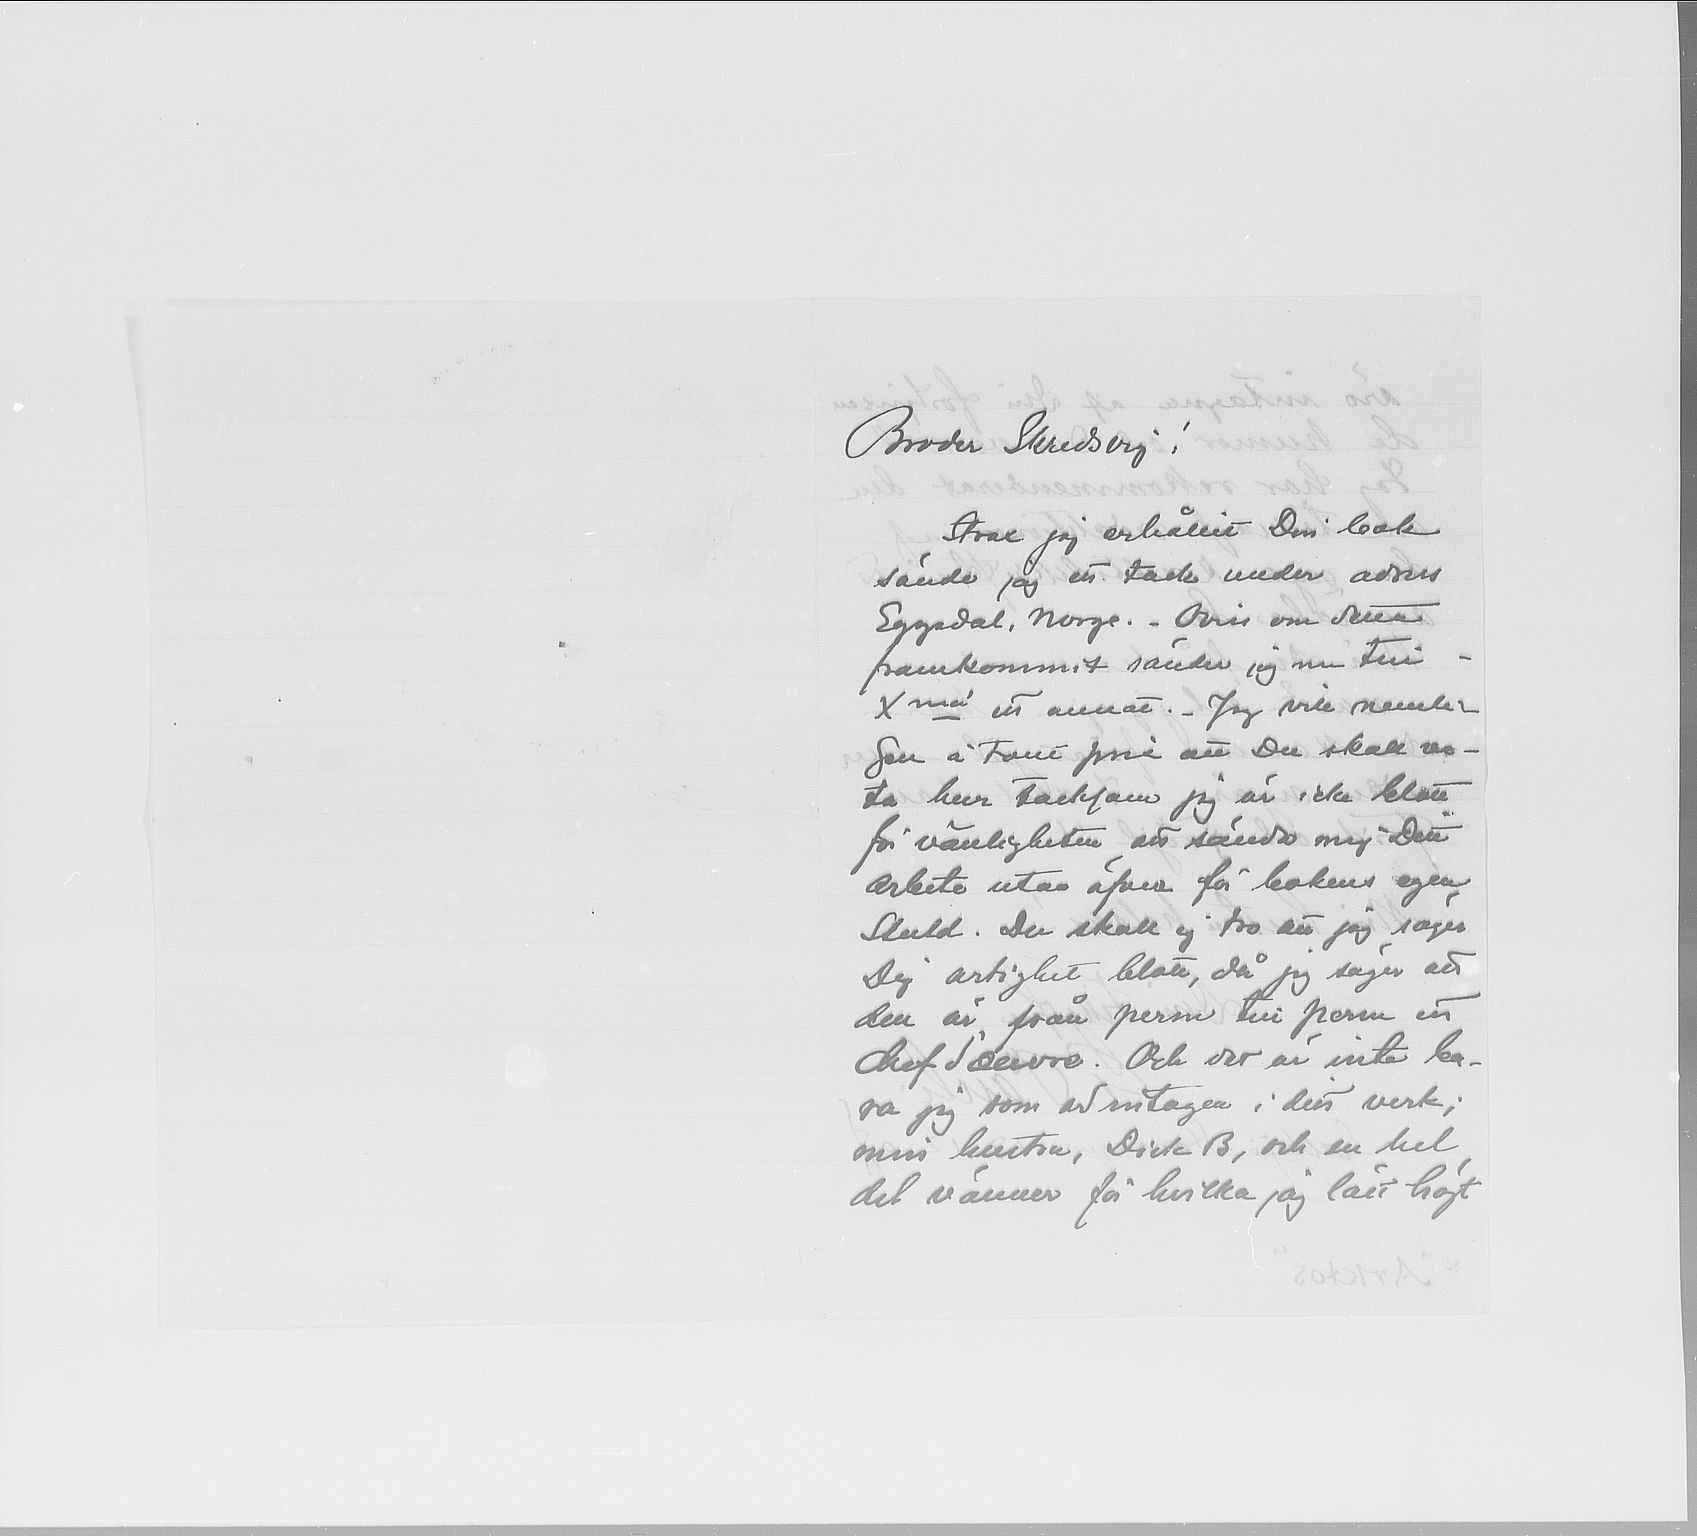 Broder Skredsvig!
Strax jag erhållit Din bok
sände jag ett tack under adress
Eggedal, Norge. - Oviss om detta
framkommit sänder jag nu till -
X mas ett annat. - Jag vill nemli-
gen à tout prix att Du skall ve-
ta hur tacksam jag är icke blott
för vänligheten att sända mig Ditt
arbete utan äfven för bokens egen
skuld. Du skall ej tro att jag säger
Dig artighet blott, då jag säger att
den är från perm till perm ett
chef d'œuvre. Och det är inte ba-
ra jag som är intagen i ditt verk;
min hustru, Dick B, och en hel
del vänner för hvilka jag läst högt